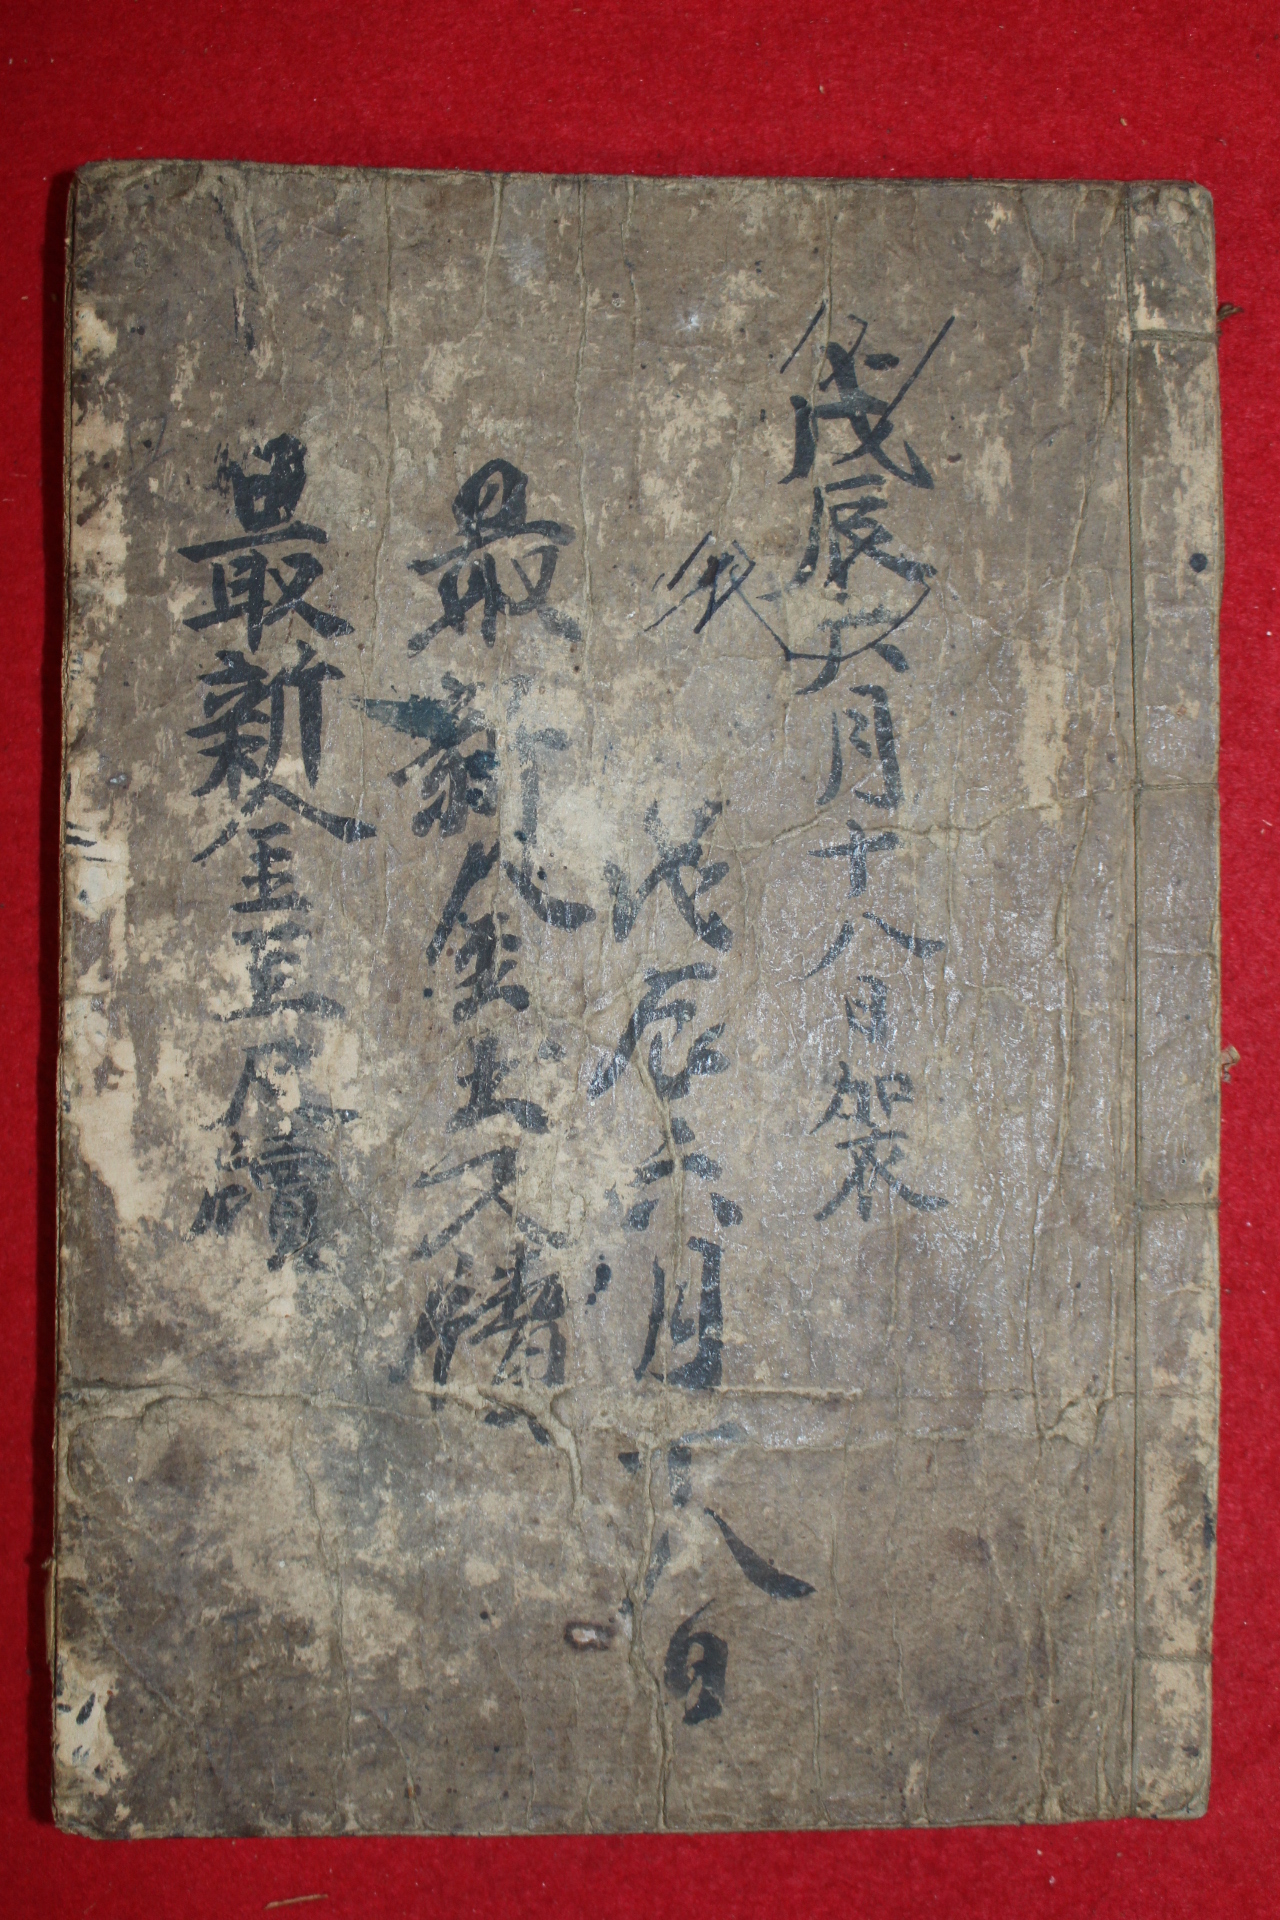 戊辰六月十八日架
戊辰六月十八日
最新金玉尺牘
最新金玉尺牘